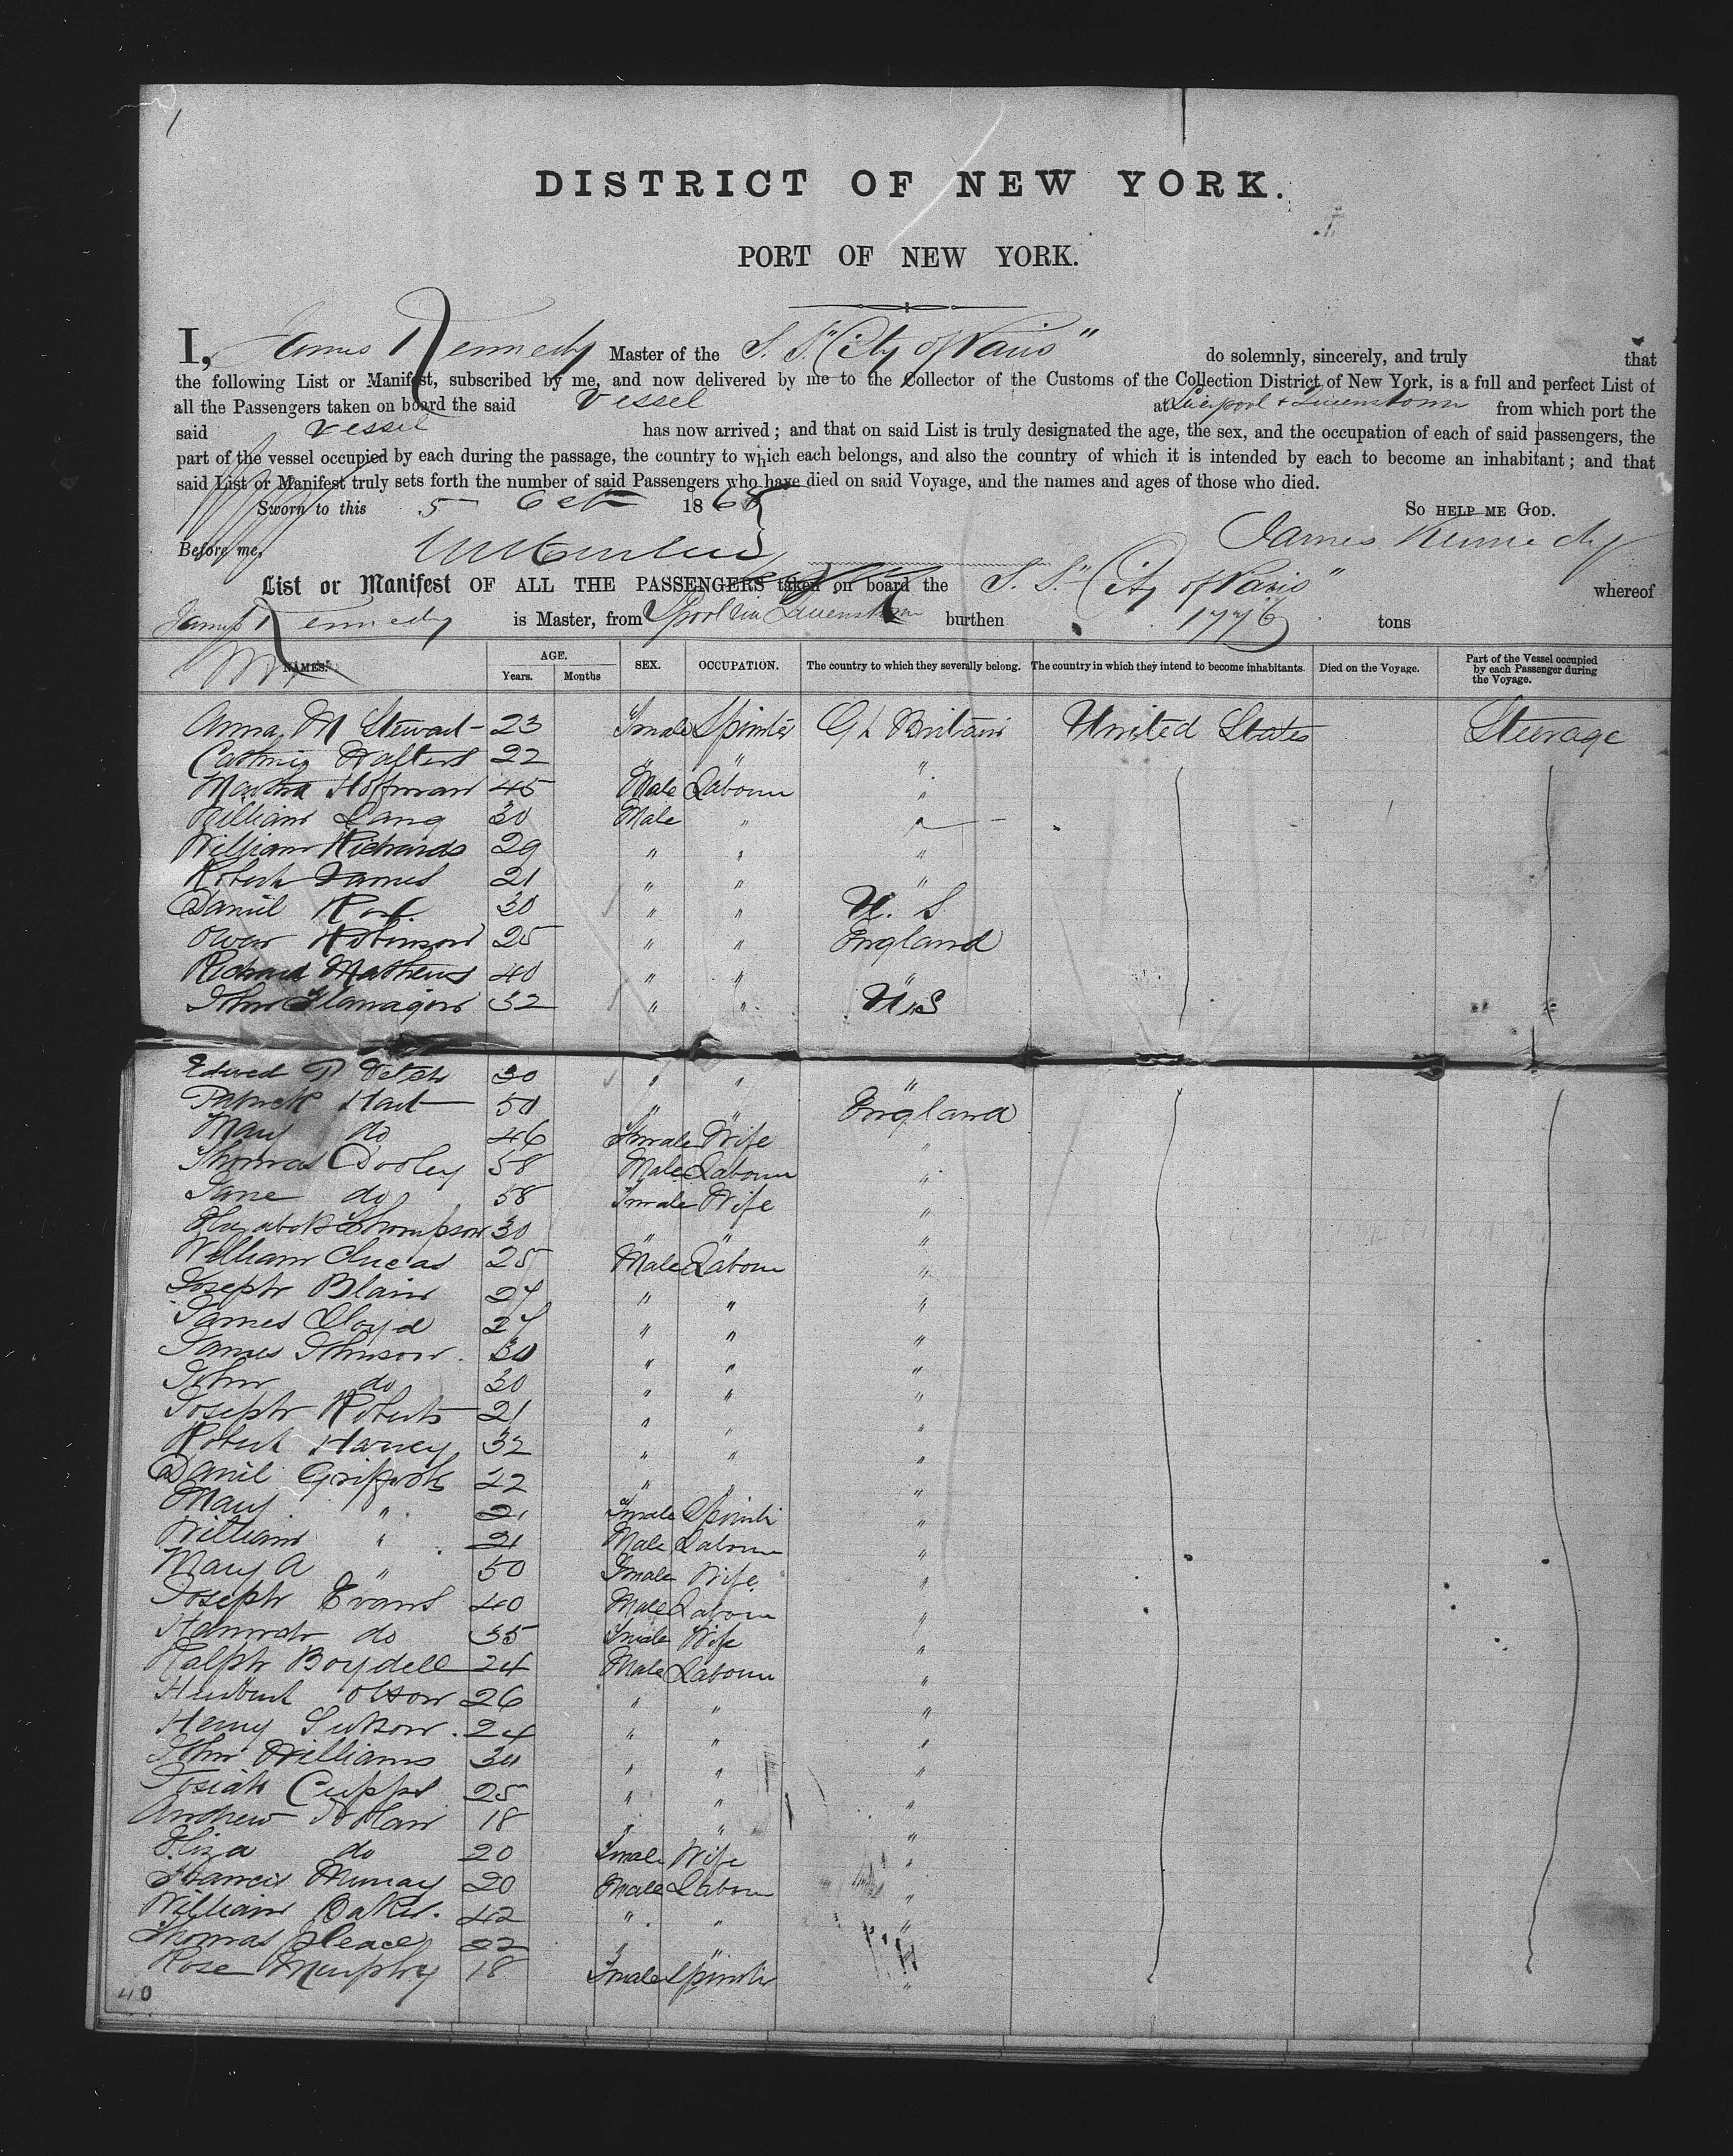 1
DISTRICT OF NEW YORK.
PORT OF NEW YORK.
I, James Kennedy Master of the S. S. "City of Paris" do solemnly, sincerely, and truly that
the following List or Manifest, subscribed by me, and now delivered by me to the Collector of the Customs of the Collection District of New York, is a full and perfect List of
all the Passengers taken on board the said Vessel at Liverpool + Queenstown from which port the
said Vessel has now arrived; and that on said List is truly designated the age, the sex, and the occupation of each of said passengers, the
part of the vessel occupied by each during the passage, the country to which each belongs, and also the country of which it is intended by each to become an inhabitant; and that
said List or Manifest truly sets forth the number of said Passengers who have died on said Voyage, and the names and ages of those who died.
Sworn to this 5 Oct 1868 So HELP ME GOD.
Before me, James Kennedy
List or Manifest OF ALL THE PASSENGERS taken on board the S. S. "City of Paris" whereof
James Kennedy is Master, from Lpool via Queenstown burthen 1776 tons
NAMES. AGE. Years. Months SEX. OCCUPATION. The country to which they severally belong. The country in which they intend to become inhabitants. Died on the Voyage. Part of the Vessel occupied by each Passenger during the Voyage.
Anna M Stewart 23 Female Spinster Gt Britain United States Steerage
22 " " "
Hoffman 45 Male Labourer "
William Lang 30 Male " "
William Richards 29 " " "
Robert James 21 " " "
Daniel 30 " " U. S
Owen Robinson 25 " " England
Richard Mathews 40 " " "
John Flanagan 32 " " U. S
Edward P 30 " " "
Patrick Hart 50 " " England
Mary do 46 Female Wife "
Thomas Dooley 58 Male Labourer "
Jane do 58 Female Wife "
Elizabeth Thompson 30 " " "
William Lucas 25 Male Labour "
Joseph Blain 27 " " "
James Lloyd 27 " " "
James Johnson. 30 " " "
John do 30 " " "
Joseph Roberts 21 " " "
Robert Harvey 32 " " "
Daniel Griffiths 22 " " "
Mary " 21 Female Spinster "
William " 21 Male Labourer "
Mary A " 50 Female Wife "
Joseph Evans 40 Male Labour "
Hannah do 35 Female Wife "
Ralph Boydell 24 Male Labourer "
26 " " "
Henry 24 " " "
John Williams 30 " " "
Josiah Cupps 25 " " "
Andrew 18 " " "
Eliza do 20 Female Wife "
Francis Murray 20 Male Labour "
William Baker. 42 " " "
Thomas 22 " "
Rose Murphy 18 Female Spinster "
40